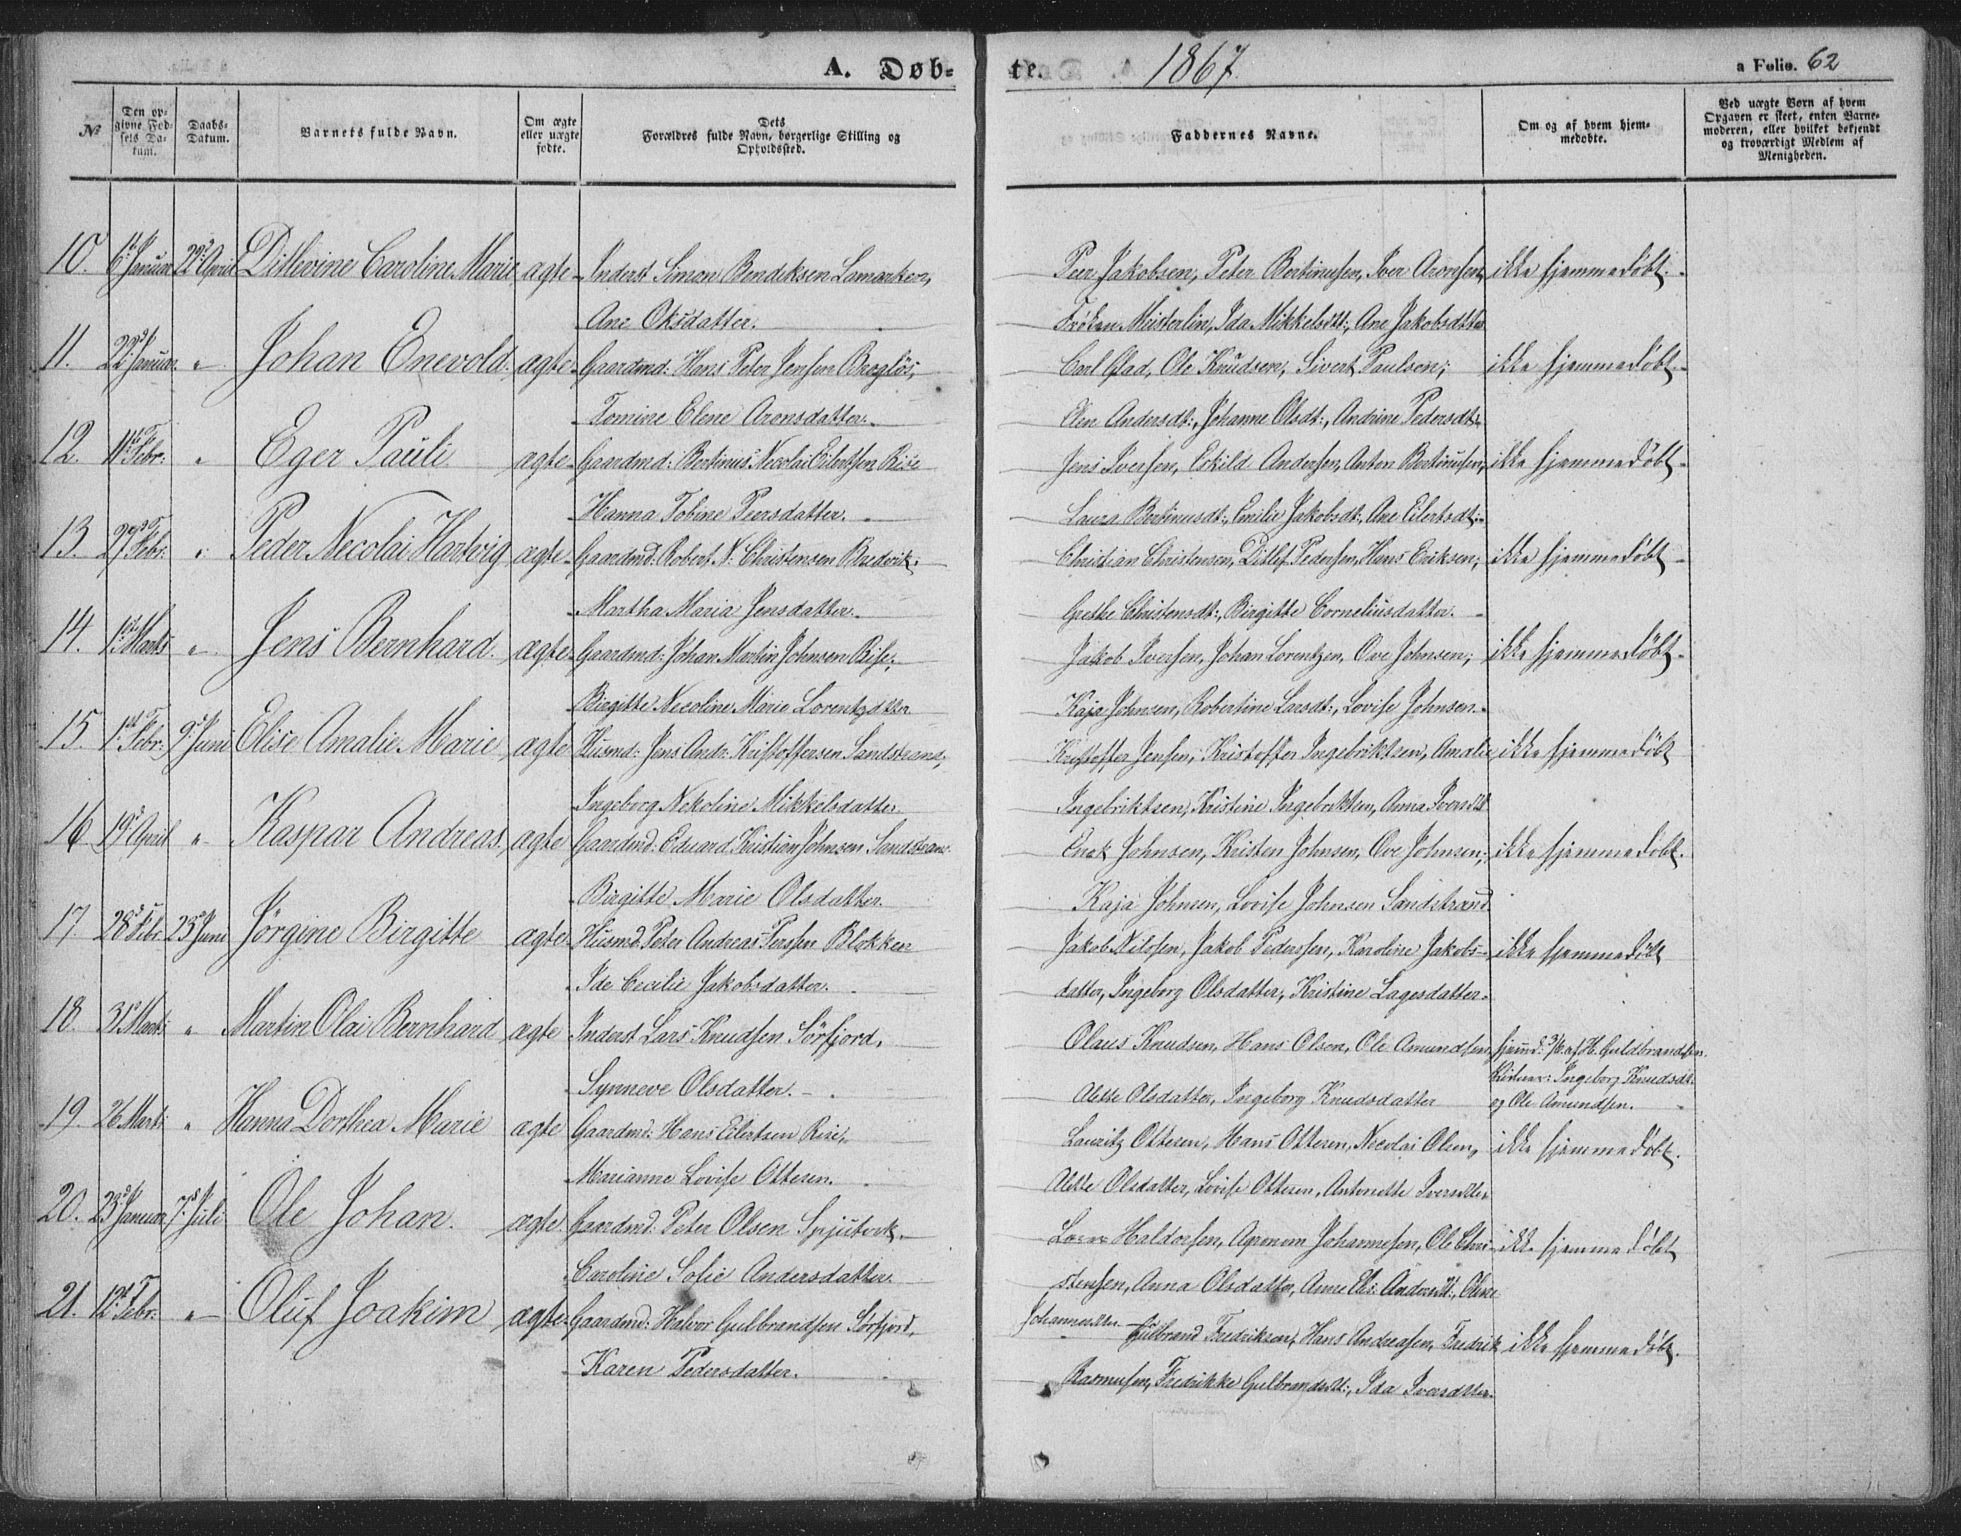 A. Døb-
te.
1867
a Folio. 62
No
Den opgivne Fødsels Datum.
Daabs-Datum.
Barnets fulde Navn.
Om ægte eller uægte fødte.
Dets Forældres fulde Navn, borgerlige Stilling og Opholdssted.
Faddernes Navne.
Om og af hvem hjemmedøbte.
Ved uægte Børn af hvem Opgaven er skeet, enten Barnemoderen, eller hvilket bekjendt og troværdigt Medlem af Menigheden.
10. 6te Januar 22de April Ditlevine Caroline Marie ægte Inderst Simon Bendiksen Lamarken, Peer Jakobsen, Peter Bertinusen, Iver Aronsen, ikke hjemmedøbt.
Ane Oksdatter. Frøken Meisterlin, Ida Mikkelsdt:, Ane Jakobsdtter
11. 22de Januar " Johan Enevold. ægte Gaardmd: Hans Peter Jensen Bogløs, Carl Glad, Ole Knudsen, Sivert Paulsen; ikke hjemmedøbt.
Tomine Elene Aronsdatter. Elen Andersdt:, Johanne Olsdt:, Andrine Pedersdt:
12. 11te Febr: " Eger Pauli ægte Gaardmd: Bertinus Nicolai Eilertsen Rise Jens Iversen, Eskild Andersen, Anton Bertinusen, ikke hjemmedøbt.
Hanna Tobine Peersdatter. Laura Bertinusdt:, Emilie Jakobsdt:, Ane Eilertsdt:
13. 27de Febr: " Peder Necolai Hartvig ægte Gaardmd: Robert N. Christensen Bredvik. Christian Christensen, Ditlef Pedersen, Hans Eriksen; ikke hjemmedøbt
Martha Maria Jensdatter. Grethe Christensdt:, Birgitte Corneliusdatter.
14. 1ste Marts " Jens Bernhard. ægte Gaardmd: Johan Martin Johnsen Rise; Jakob Iversen, Johan Lorentzen, Ove Johnsen; ikke hjemmedøbt.
Birgitte Necoline Marie Lorentzdtter Kaja Johnsen, Robertine Larsdt:, Lovise Johnsen.
15. 1ste Febr: 9de Juni Elise Amalie Marie ægte Husmd: Jens Andr: Kristoffersen Sandstrand, Kristoffer Jensen, Kristoffer Ingebriktsen, Amalie ikke hjemmedøbt
Ingeborg Nekoline Mikkelsdatter Ingebriktsen, Kristine Ingebriktsen, Anna Iversdtt
16 19de April " Kaspar Andreas, ægte Gaardmd: Eduard Kristian Johnsen Sandstrand Enok Johnsen, Kristen Johnsen, Ove Johnsen; ikke hjemmedøbt.
Birgitte Marie Olsdatter. Kaja Johnsen, Lovise Johnsen Sandstrand.
17. 28de Febr 23de Juni Jørgine Birgitte ægte Husmd. Peter Andreas Perssen Blokken Jakob Nilssen, Jakob Pederssen, Karoline Jakobs- ikke hjemmedøbt
Ide Cecilie Jakobsdatter. datter, Ingeborg Olsdatter, Kristine Lagesdatter.
18. 31te Mart: " Martin Olai Bernhard ægte Inderst Lars Knudsen Sørfjord, Olaus Knudsen, Hans Olsen, Ole Amundsen, hjemd: 3/6 af H. Guldbrandsen.
Synneve Olsdatter. Alette Olsdatter, Ingeborg Knudsdatter Ingeborg Knudsdt: og Ole Amundsen.
19. 26 Mart: " Hanna Dorthea Marie ægte Gaardmd: Hans Eilertsen Rise, Lauritz Ottesen, Hans Ottesen, Necolai Olsen, ikke hjemmedøbt.
Marianne Lovise Ottesen. Alette Olsdatter, Lovise Ottesen, Antonette Iversdtter
20. 23de Januar 7de Juli Ole Johan. ægte. Gaardmd: Peter Olsen Spjutvik. Haldorsen, Agronom Johannesen, Ole Chri- ikke hjemmedøbt
Caroline Sofie Andersdatter. stensen, Anna Olsdatter, Anne Els: Andersdt:, Oline
Johannesdtter
21. 12te Febr: " Oluf Joakim ægte Gaardmd: Halvor Gulbrandsen Sørfjord, Gulbrand Fredriksen, Hans Andreasen, Fredrik ikke hjemmedøbt.
Karen Pedersdatter. Rasmusen, Fredrikke Gulbrandsdt:, Ida Iversdtter